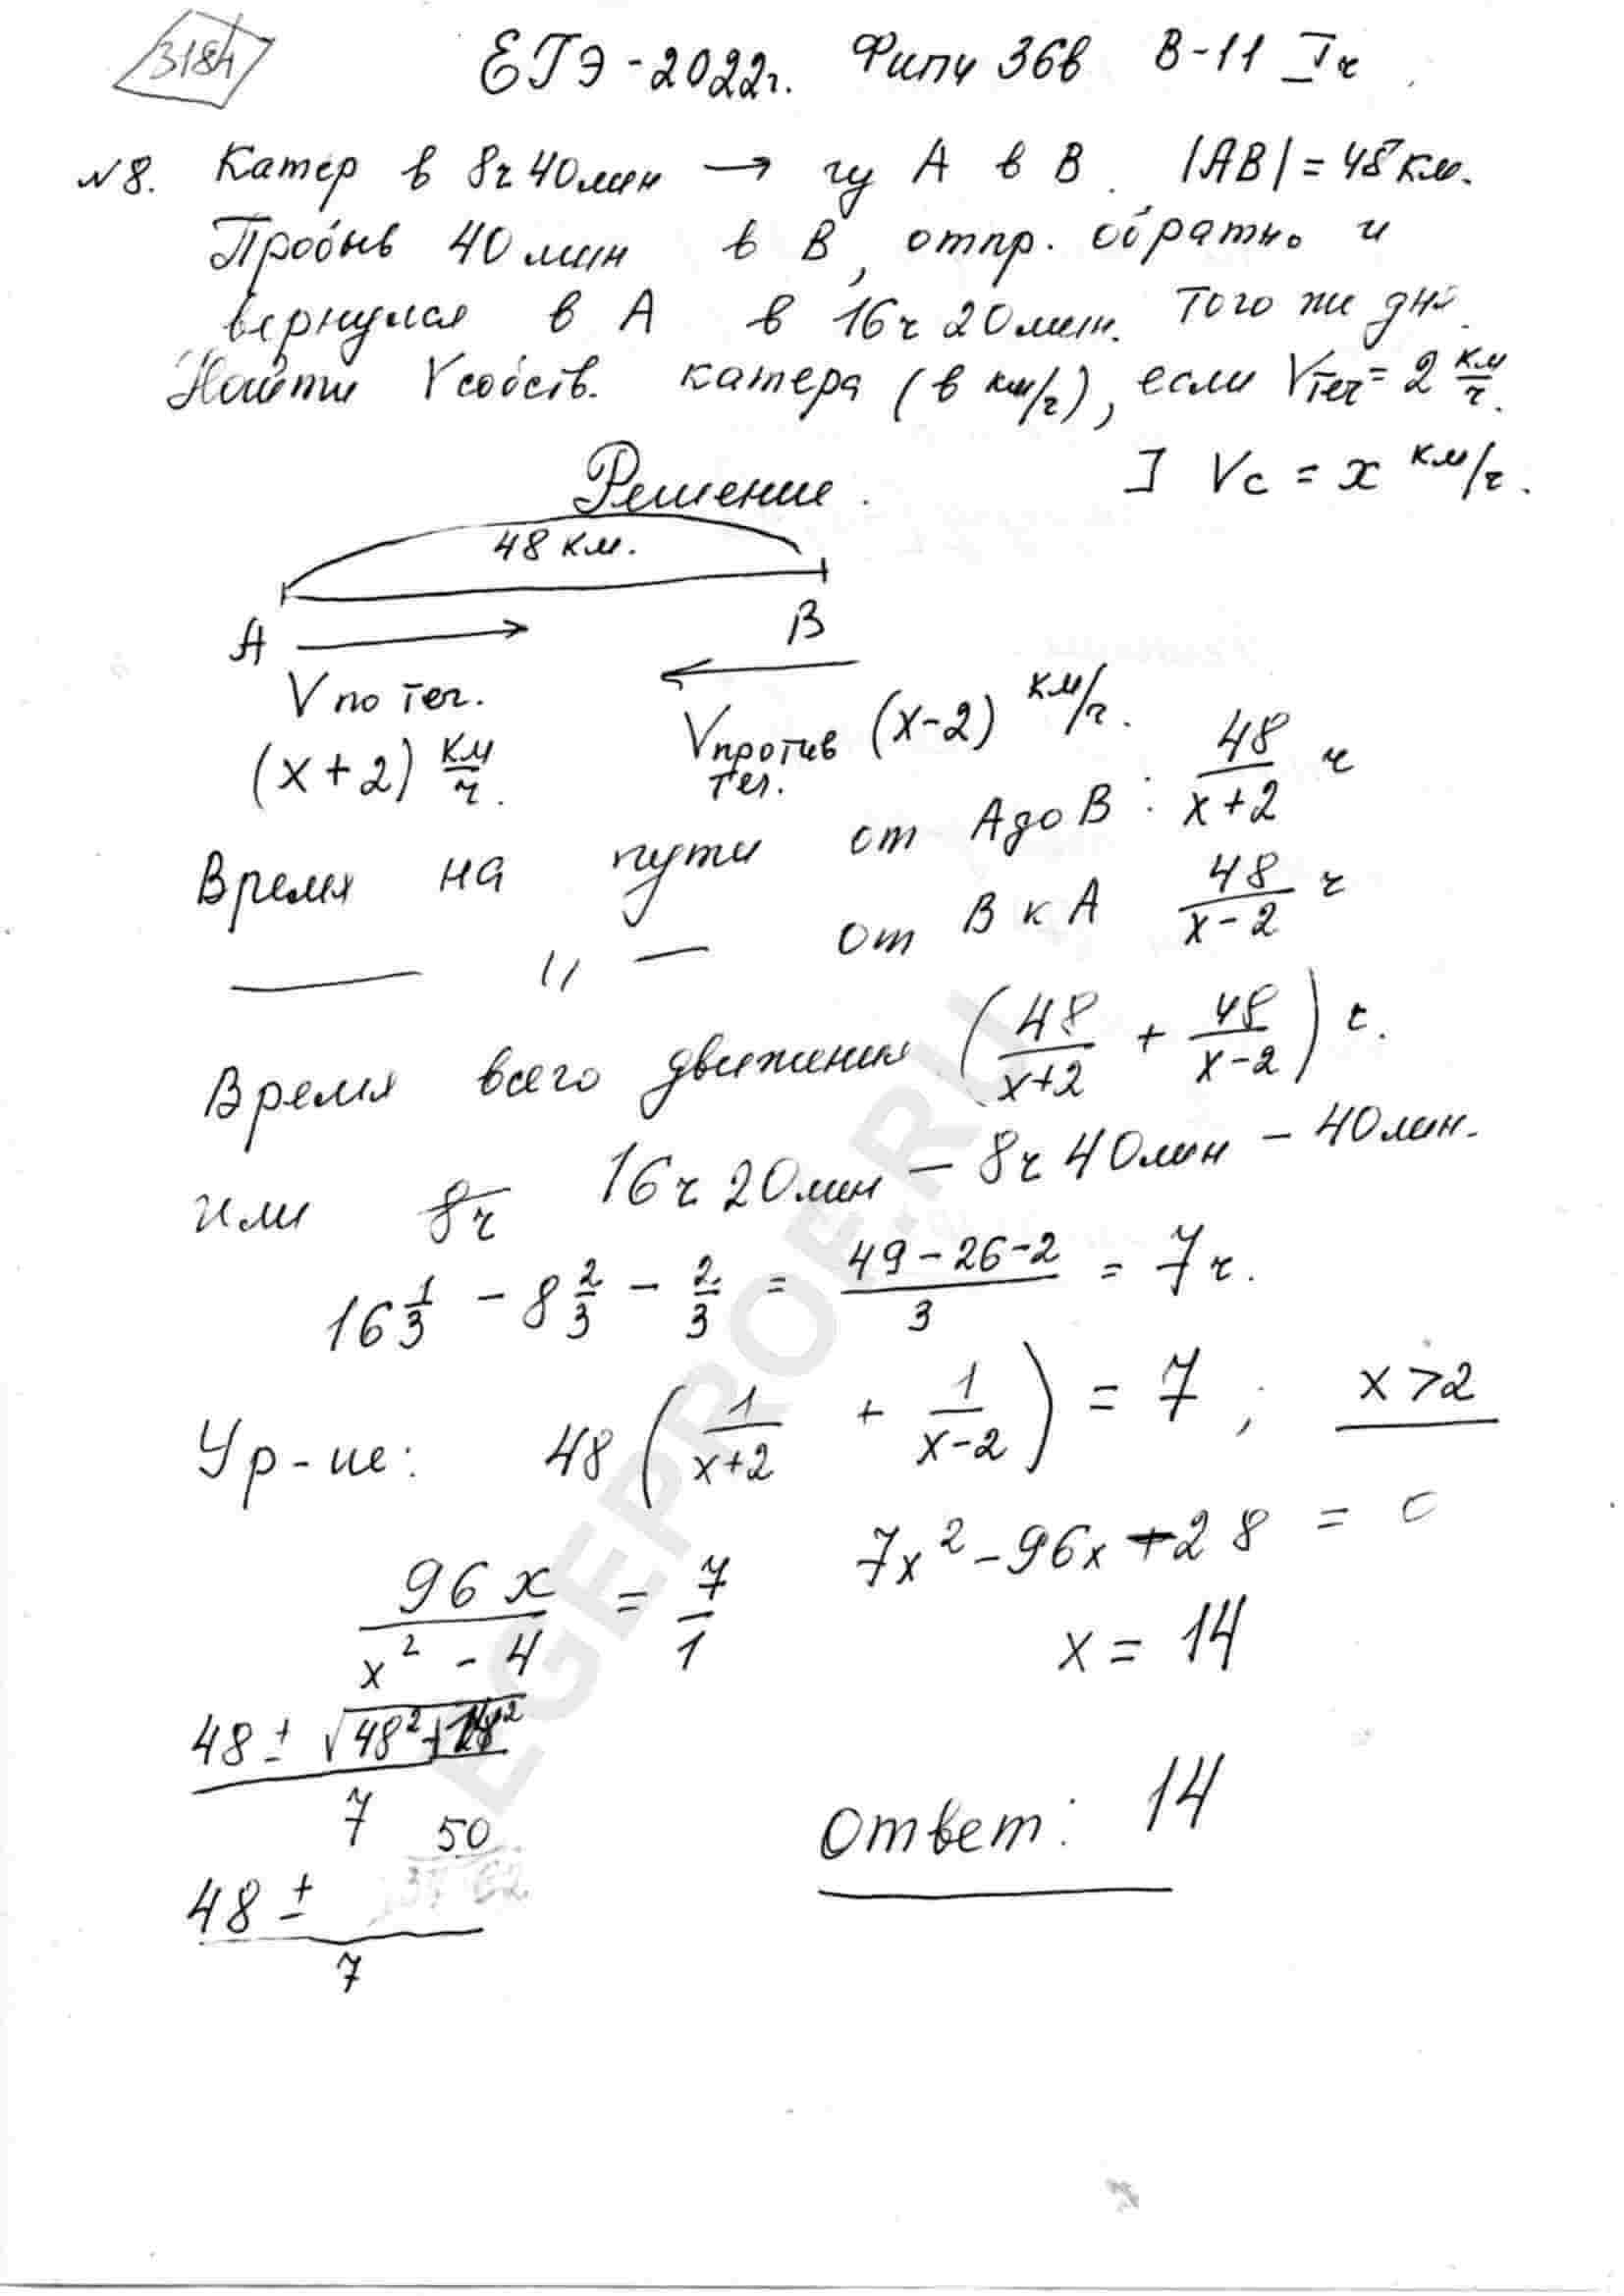 3184
ЕГЭ-2022г. Фипи 36в В-11 Iч
№8. Катер в 8ч 40мин → из А в В. |АВ| = 48 км.
Пробыв 40 мин в В, отпр. обратно и
вернулся в А в 16ч 20мин. того же дня.
Найти Vсобств. катера (в км/ч), если Vтеч = 2 км/ч.
Решение.
] Vс = x км/ч.
48 км.
А В
V по теч. Vпротив теч. (x-2) км/ч.
(x+2) км/ч.
Время на пути от А до В: 48/(x+2) ч
—— 〃 — от В к А 48/(x-2) ч
Время всего движения (48/(x+2) + 48/(x-2)) ч.
или 8ч 16ч 20мин - 8ч 40мин - 40мин.
16 1/3 - 8 2/3 - 2/3 = (49-26-2)/3 = 7ч.
Ур-ие: 48 (1/(x+2) + 1/(x-2)) = 7 ; x>2
96x/(x² - 4) = 7/1 7x² - 96x - 28 = 0
x = 14
48 ± √48² + 14²
7
50
48 ±
7
Ответ: 14
EGEPROF.RU